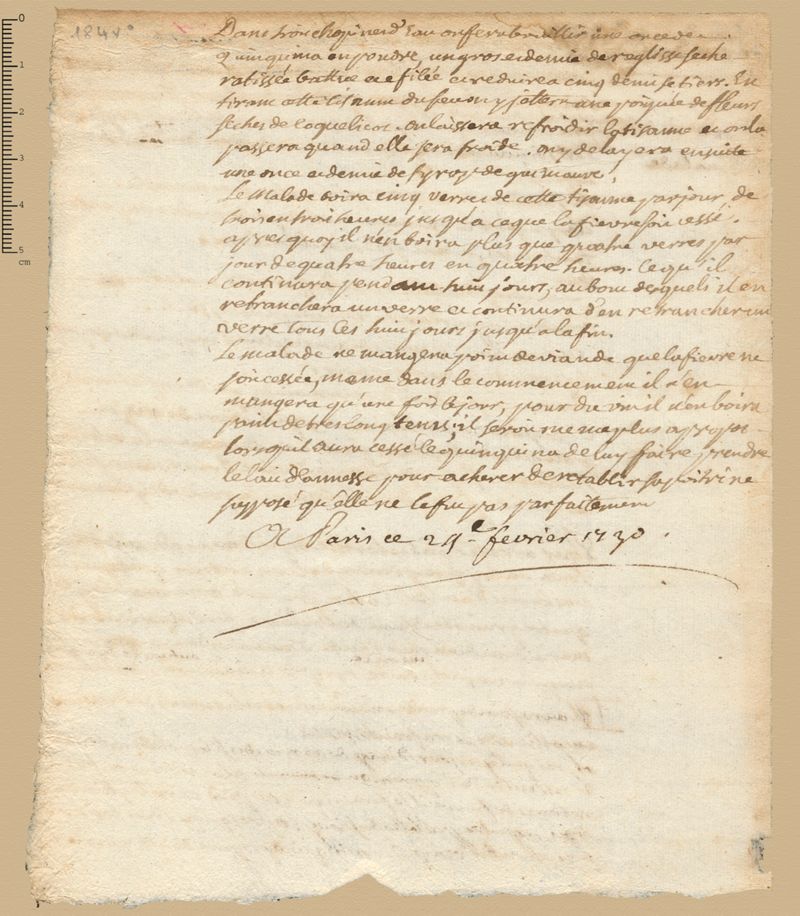 184 v°
Dans trois chopines d'Eau on fera bouillir une once de
quinquina en poudre, un gros et demie de reglisse seche
ratissée battue et efilée et reduire a cinq demi setiers. En
tirant cette tisanne du feu on y jettera une poignée de fleurs
seches de Coquelicos. on laissera refroidir la tisanne et on la
passera quand elle sera froide. on y delayera ensuite
une once et demie de syrop de guimauve,
Le Malade boira cinq verres de cette tisanne par jour, de
trois en trois heures jusqu'a ce que la fievre soit cessé.
apres quoy il n'en boira plus que quatre verres par
jour de quatre heures en quatre heures. Ce qu'il
continura pendant huit jours, au bout desquels il en
retranchera un verre et continura d'en retrancher un
verre tous les huit jours jusqu'a la fin.
Le malade ne mangera point de viande que la fievre ne
soit cessée, meme dans le commencement il n'en
mangera qu'une fois le jour, pour du vin il n'en boira
point de tres long tems, il seroit meme plus a propos
lorsqu'il aura cessé le quinquina de luy faire prendre
le lait d'annesse pour achever de retablir sa poitrine
supposé qu'elle ne le fut pas parfaitement
A Paris ce fevrier 1730.